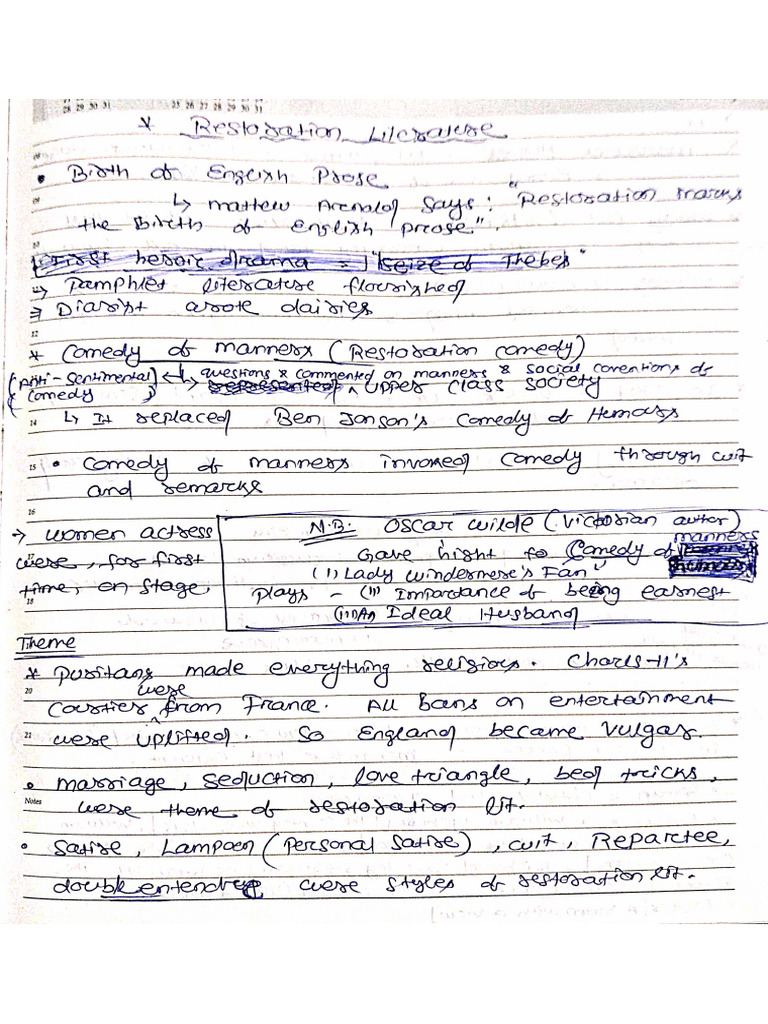 28 29 30 31 25 26 27 28 29 30 31
* Restoration Literature
• Birth of English Prose
↳ mattew Arenold says: "Restoration marks
the Birth of English prose".
First heroic drama = "seize of Thebes"
↳ Pamphlet literature flourished
⇒ Diarist wrote dairies
12
* Comedy of manners (Restoration comedy)
(Anti-Sentimental comedy) ↳ questions & commented on manners & social conentions of
↳ represented upper class society
14 ↳ It replaced Ben Jonson's Comedy of Humors
15 • Comedy of manners invoked comedy through wit
and remarks
16
→ women actress
were, for first
time, on stage.
18
N.B. Oscar Wilde (Victorian author)
Gave hight to Comedy of manners
(i) Lady Windermere's Fan"
Plays - (ii) Importance of being earnest
(iii) An Ideal Husband
Theme
* Puritans made everything religious. Charls-II's
20 Courtier were from France. All bans on entertainment
21 were uplifted. So England became vulgar.
• Marriage, Seduction, love triangle, bed tricks,
Notes were theme of restoration lit.
• Satire, Lampoen (Personal Satire), wit, Repartee,
double entendre were styles of restoration lit.